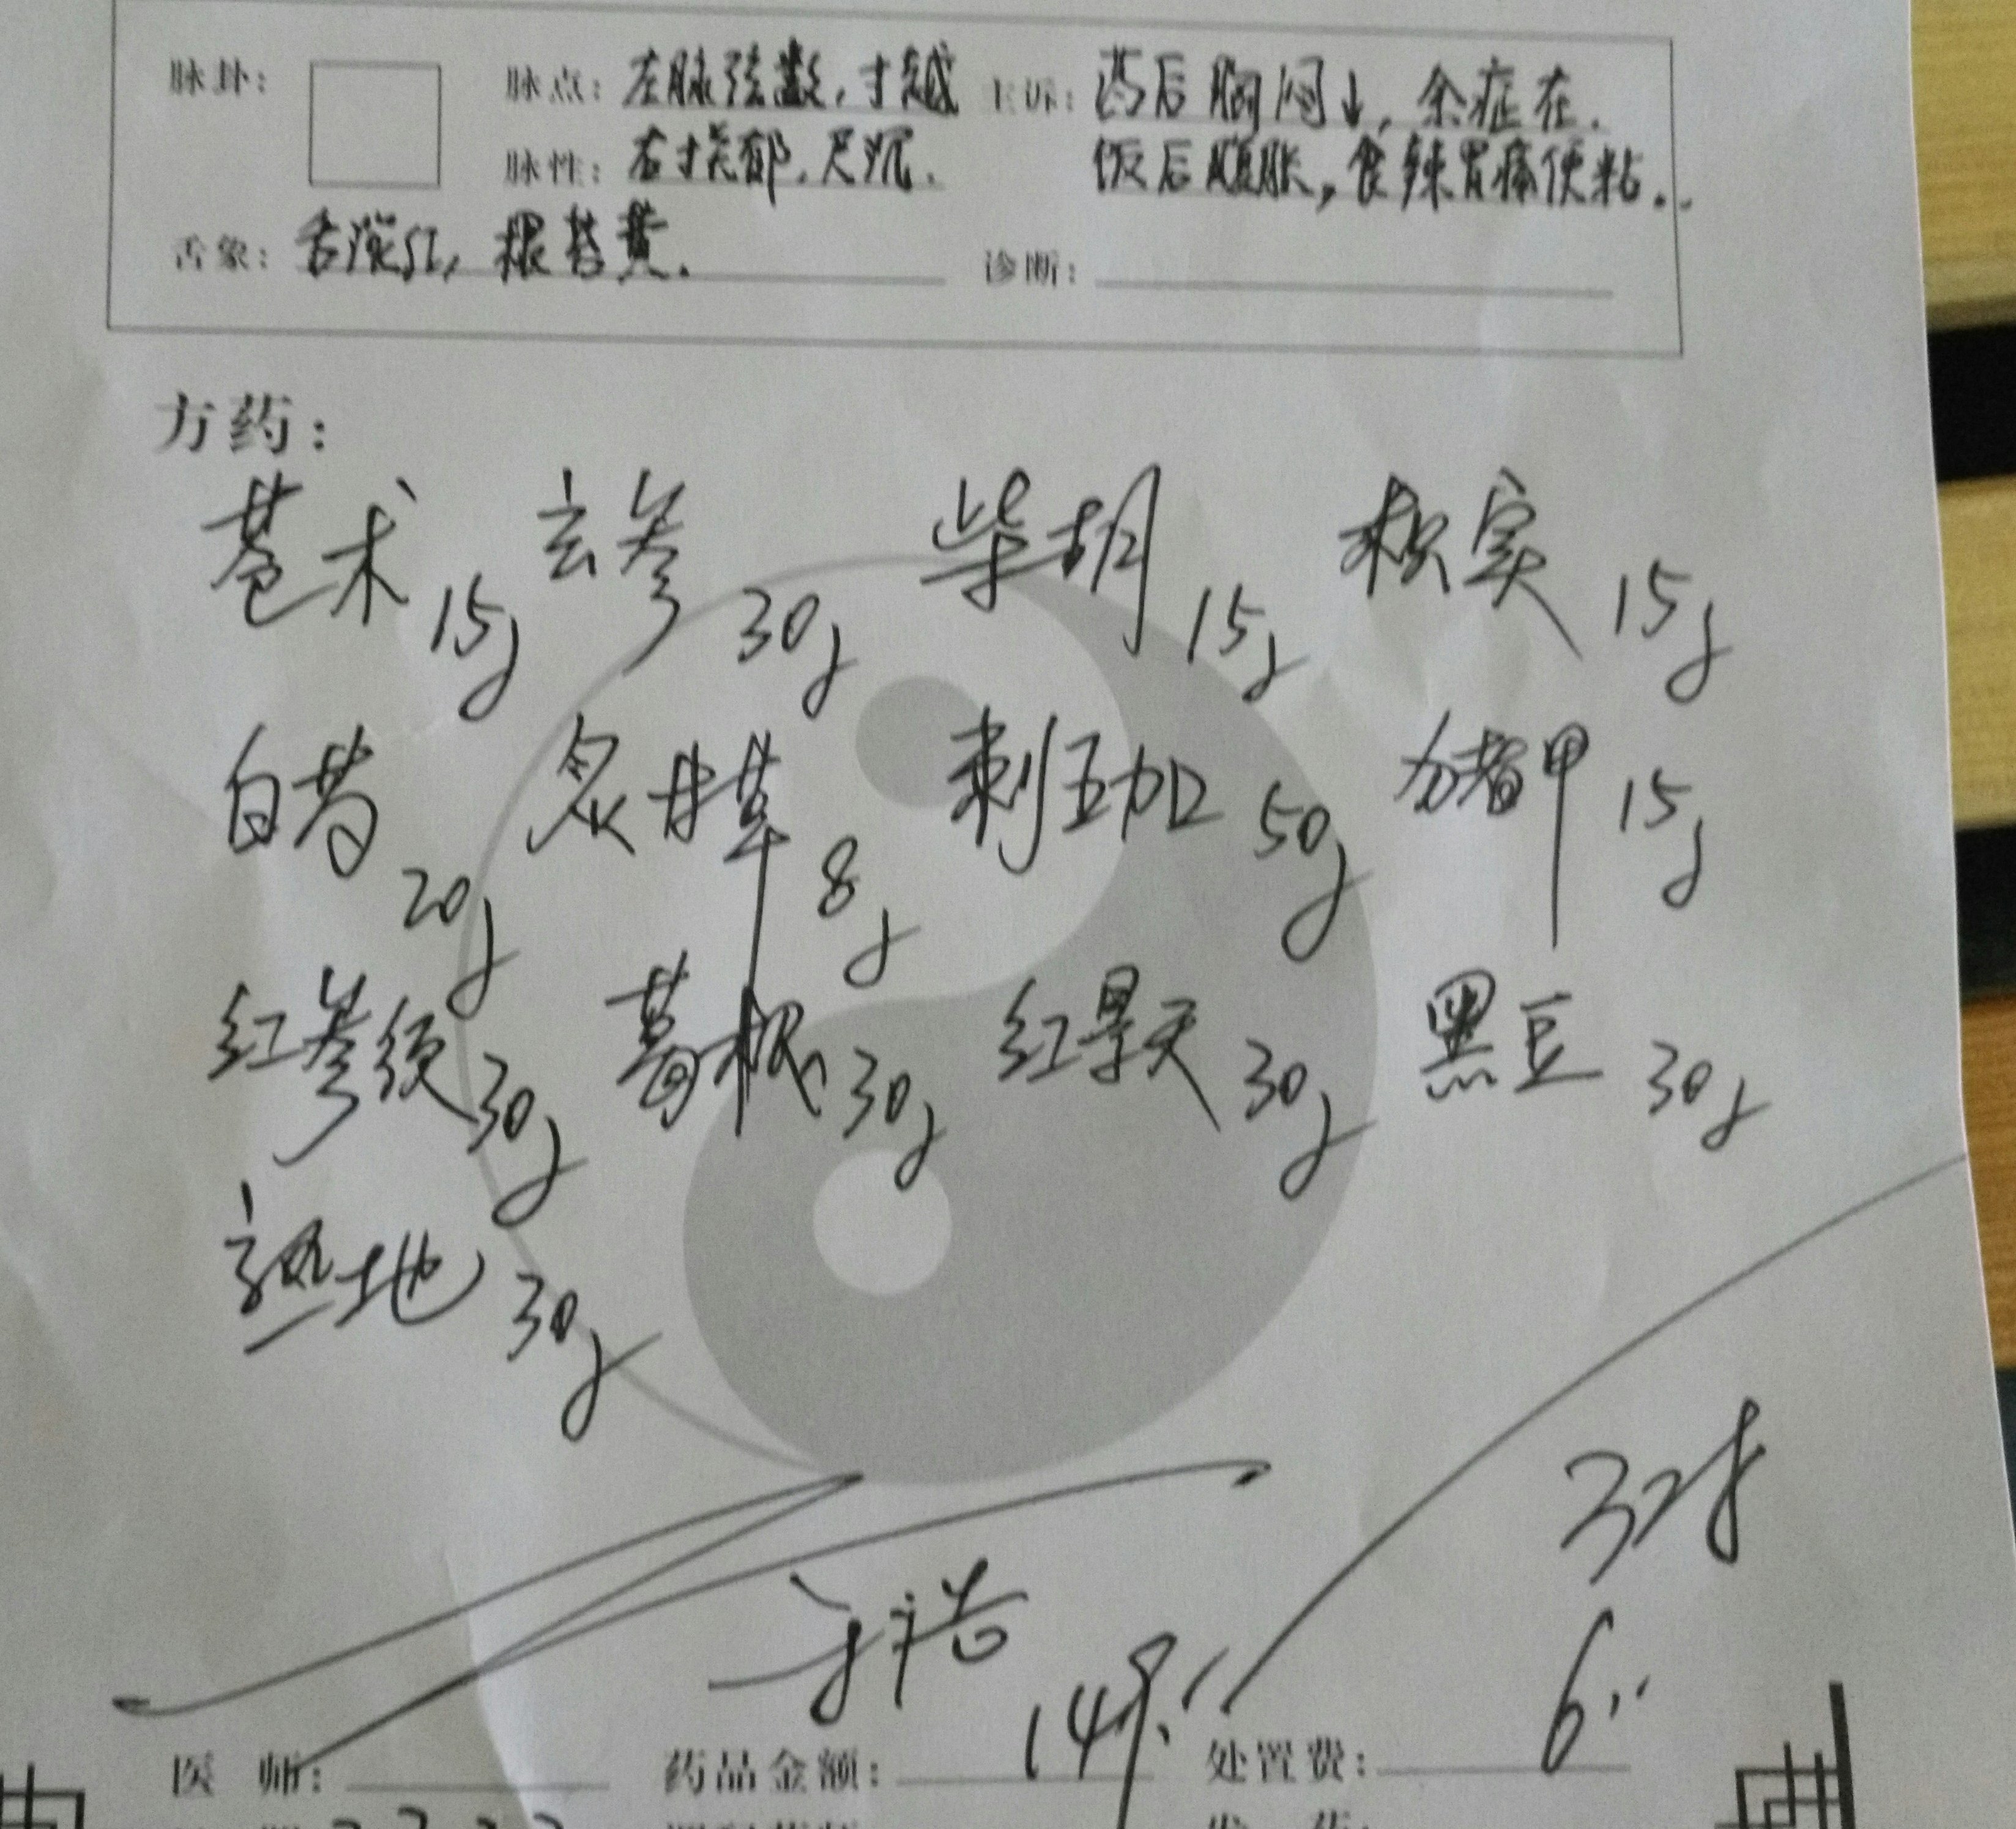 脉卦： 脉点：左脉弦数，寸越 主诉：药后胸闷↓，余症在．
脉性：右寸关郁．尺沉． 饭后腹胀，食辣胃痛便粘．
舌象：舌淡红，根苔黄． 诊断：
方药：
苍术 15g 玄参 30g 柴胡 15g 枳实 15g
白芍 20g 炙甘草 8g 刺五加 50g 猪甲 15g
红参须 30g 葛根 30g 红景天 30g 黑豆 30g
熟地 30g
149.
6
医 师： 药品金额： 处置费：